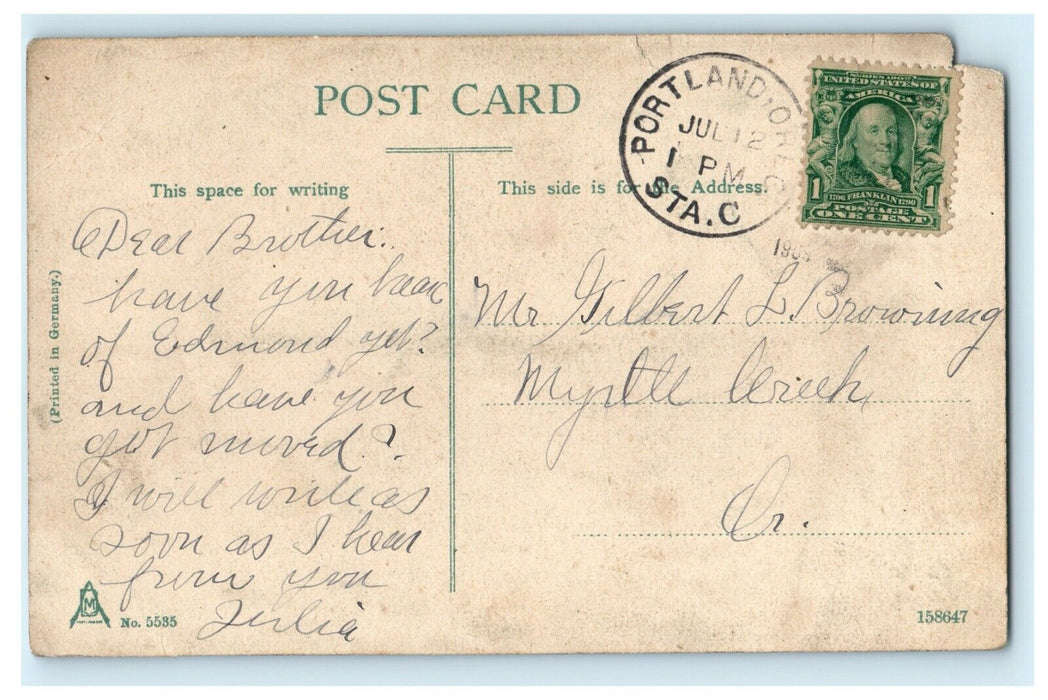 POST CARD
This space for writing
This side is for the Address.
PORTLAND, OREG.
JUL 12
1 PM
STA. C
SERIES 1902
UNITED STATES OF
AMERICA
1 1706 FRANKLIN 1790 1
POSTAGE
ONE CENT
Dear Brother:
have you hear
of Edmond yet?
and have you
got moved?
I will write as
soon as I hear
from you
Julia
Mr Gilbert L. Browning
Myrtle Creek,
Or.
(Printed in Germany.)
M
No. 5535
158647